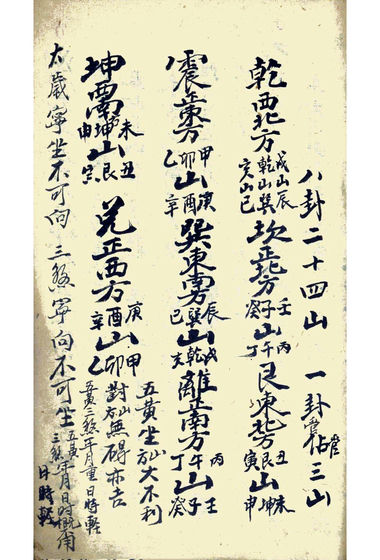 八卦二十四山 一卦管三山
乾西北方 戌山辰 乾山巽 亥山巳 坎正北方 壬 子山午 癸 丙 丁 艮東北方 丑 艮山坤 寅 未 申
震正東方 甲 卯山酉 乙 庚 辛 巽東南方 辰 巽山乾 巳 戌 亥 離正南方 丙 午山子 丁 壬 癸
坤西南方 未 坤山艮 申 丑 寅 兌正西方 庚 酉山卯 辛 甲 乙
五黃坐山大不利
對方無碍亦吉
五黃三煞年月重日時輕
太歲寧坐不可向 三煞寧向不可坐
五黃三煞年月日時
日時輕